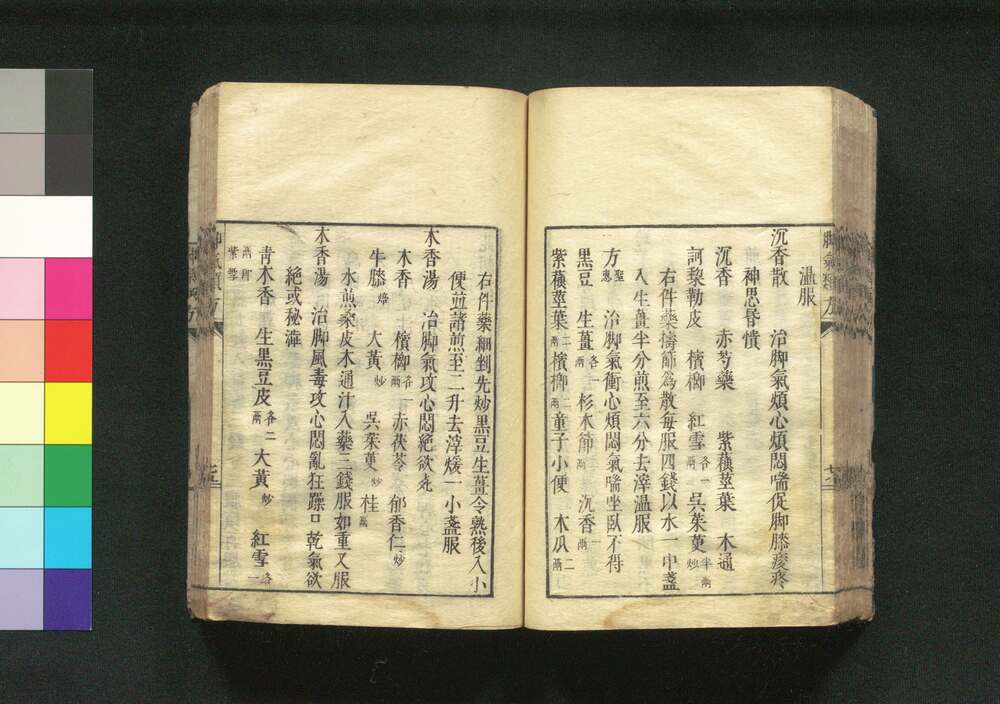 溫服
沉香散　治脚氣煩心煩悶喘促脚膝痠疼
神思昬憒
沉香　赤芍藥　紫蘓莖葉　木通
訶黎勒皮　檳榔　紅雪各一兩　呉茱萸半兩炒
右件藥擣篩爲散每服四錢以水一中盞
入生薑半分煎至六分去滓溫服
方聖惠　治脚氣衝心煩悶氣喘坐臥不得
黒豆　生薑各一兩　杉木節兩　沉香一兩
紫蘓莖葉二兩　檳榔二兩　童子小便　木瓜二兩
右件藥細剉先炒黒豆生薑令熟後入小
便並諸煎至二升去滓煖一小盞服
木香湯　治脚氣攻心悶絶欲死
木香　檳榔各一兩　赤茯苓　郁香仁炒
牛膝焙　大黃炒　呉茱萸炒　桂兩
水煎桑皮木通汁入藥二錢服如重又服
木香湯　治脚風毒攻心悶亂狂躁口乾氣欲
絶或秘澁
青木香　生黒豆皮各二兩　大黃炒　紅雪各一
紫雪
脚氣類方